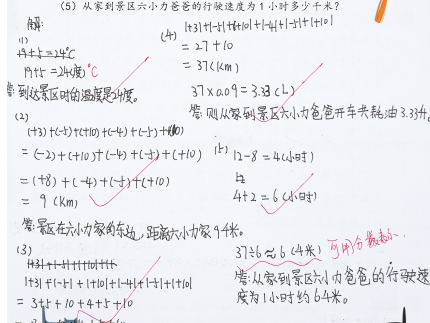 （5）从家到景区六小力爸爸的行驶速度为1小时多少千米？
解:
(1)
19+5=24℃
19+5=24(度)℃
答:到达景区时的温度是24度。
(2)
(+3)+(-5)+(+10)+(-4)+(-5)+(+10)
=(-2)+(+10)+(-4)+(-5)+(+10)
=(+8)+(-4)+(-5)+(+10)
=9(Km)
答:景区在六小力家的东边,距离六小力家9千米。
(3)
|+3|+|-5|+|+10|+|-4|+|-5|+|+10|
=3+5+10+4+5+10
(4)
|+3|+|-5|+|+10|+|-4|+|-5|+|+10|
=27+10
=37(Km)
37×0.09=3.33(L)
答:则从家到景区六小力爸爸开车共耗油3.33升。
(5)
12-8=4(小时)
4+2=6(小时)
37÷6≈6(千米)
可用分数表示.
答:从家到景区六小力爸爸的行驶速
度为1小时约6千米。